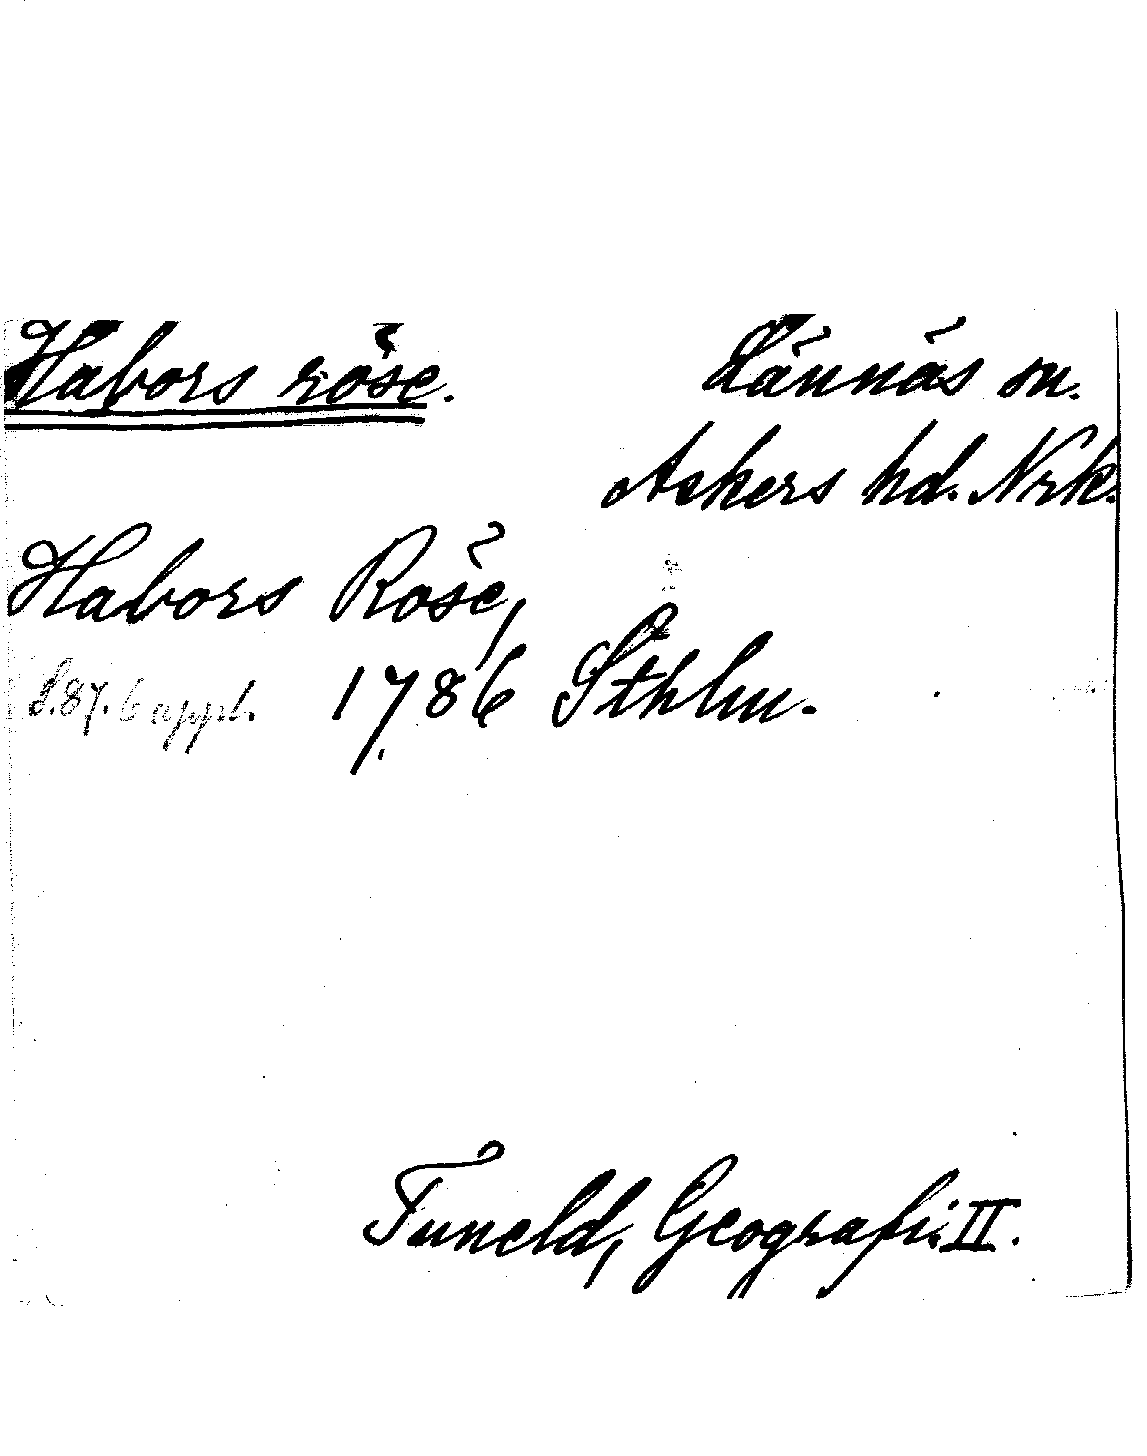 Habors röse.
Lännäs sn.
Askers hd. Nrk.
Habors Röse,
S.87. 6 uppl. 1786 Sthlm.
Tuneld, Geografi II.